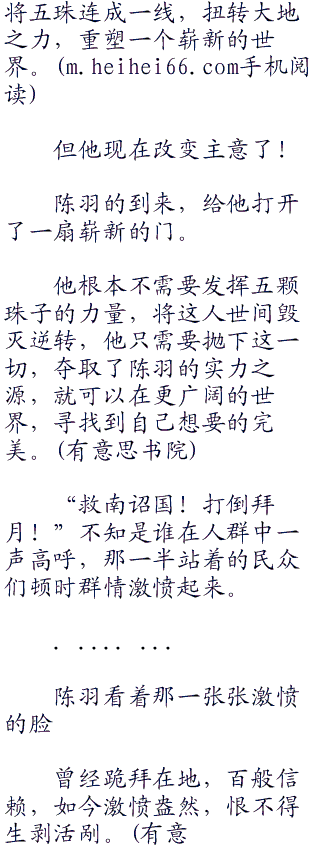 将五珠连成一线，扭转大地
之力，重塑一个崭新的世
界。(m.heihei66.com手机阅
读)
但他现在改变主意了！
陈羽的到来，给他打开
了一扇崭新的门。
他根本不需要发挥五颗
珠子的力量，将这人世间毁
灭逆转，他只需要抛下这一
切，夺取了陈羽的实力之
源，就可以在更广阔的世
界，寻找到自己想要的完
美。(有意思书院)
“救南诏国！打倒拜
月！”不知是谁在人群中一
声高呼，那一半站着的民众
们顿时群情激愤起来。
. .... ...
陈羽看着那一张张激愤
的脸
曾经跪拜在地，百般信
赖，如今激愤盎然，恨不得
生剥活剐。(有意